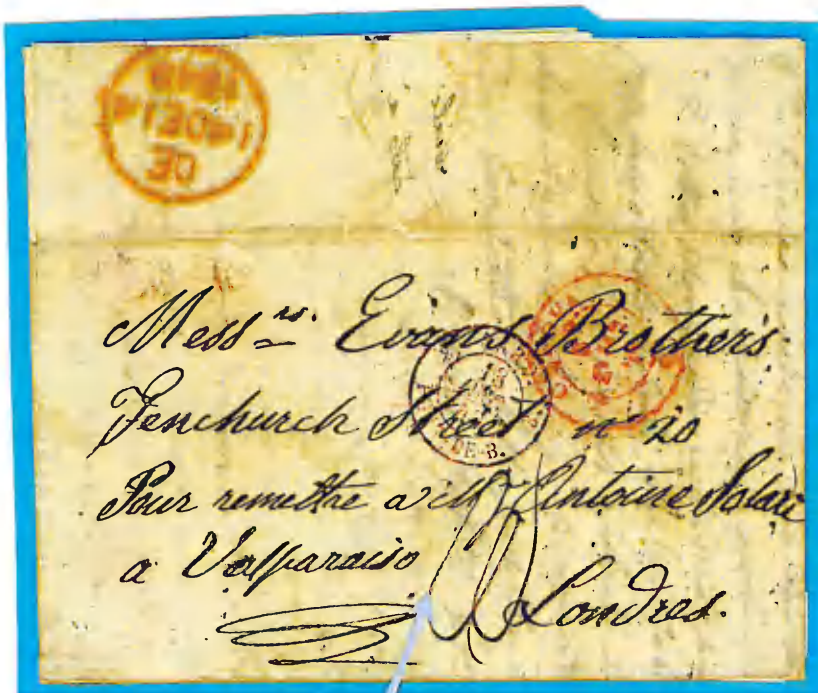 Mess.rs Evans Brothers
Fenchurch Street n° 20
Pour remettre a Mr Antoine Solari
a Valparaiso
Londres.